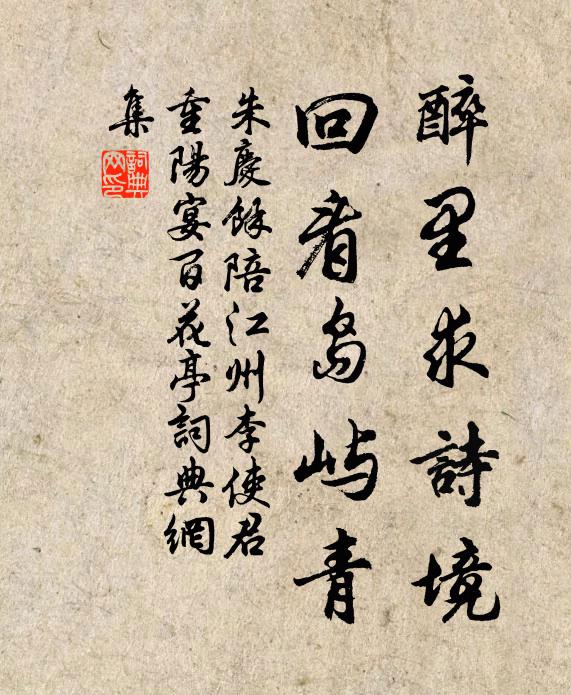 醉里求詩境
回看島嶼青
朱慶餘陪江州李使君
重陽宴百花亭詞典網
集
詞典
网印